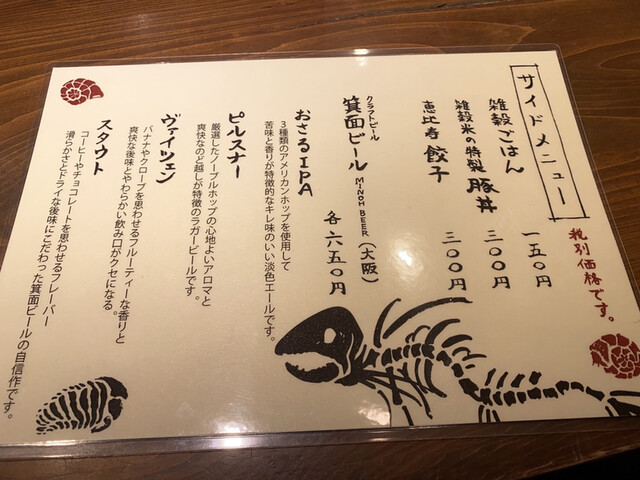 サイドメニュー
税別価格です。
雑穀ごはん 一五〇円
雑穀米の特製豚丼 三〇〇円
恵比寿餃子 三〇〇円
クラフトビール
箕面ビール MINOH BEER (大阪)
各六五〇円
おさるIPA
3種類のアメリカンホップを使用して
苦味と香りが特徴的なキレ味のいい淡色エールです。
ピルスナー
厳選したノーブルホップの心地よいアロマと
爽快なのど越しが特徴のラガービールです。
ヴァイツェン
バナナやクローブを思わせるフルーティーな香りと
爽快な後味とやわらかい飲み口がクセになる。
スタウト
コーヒーやチョコレートを思わせるフレーバー
滑らかさとドライな後味にこだわった箕面ビールの自信作です。